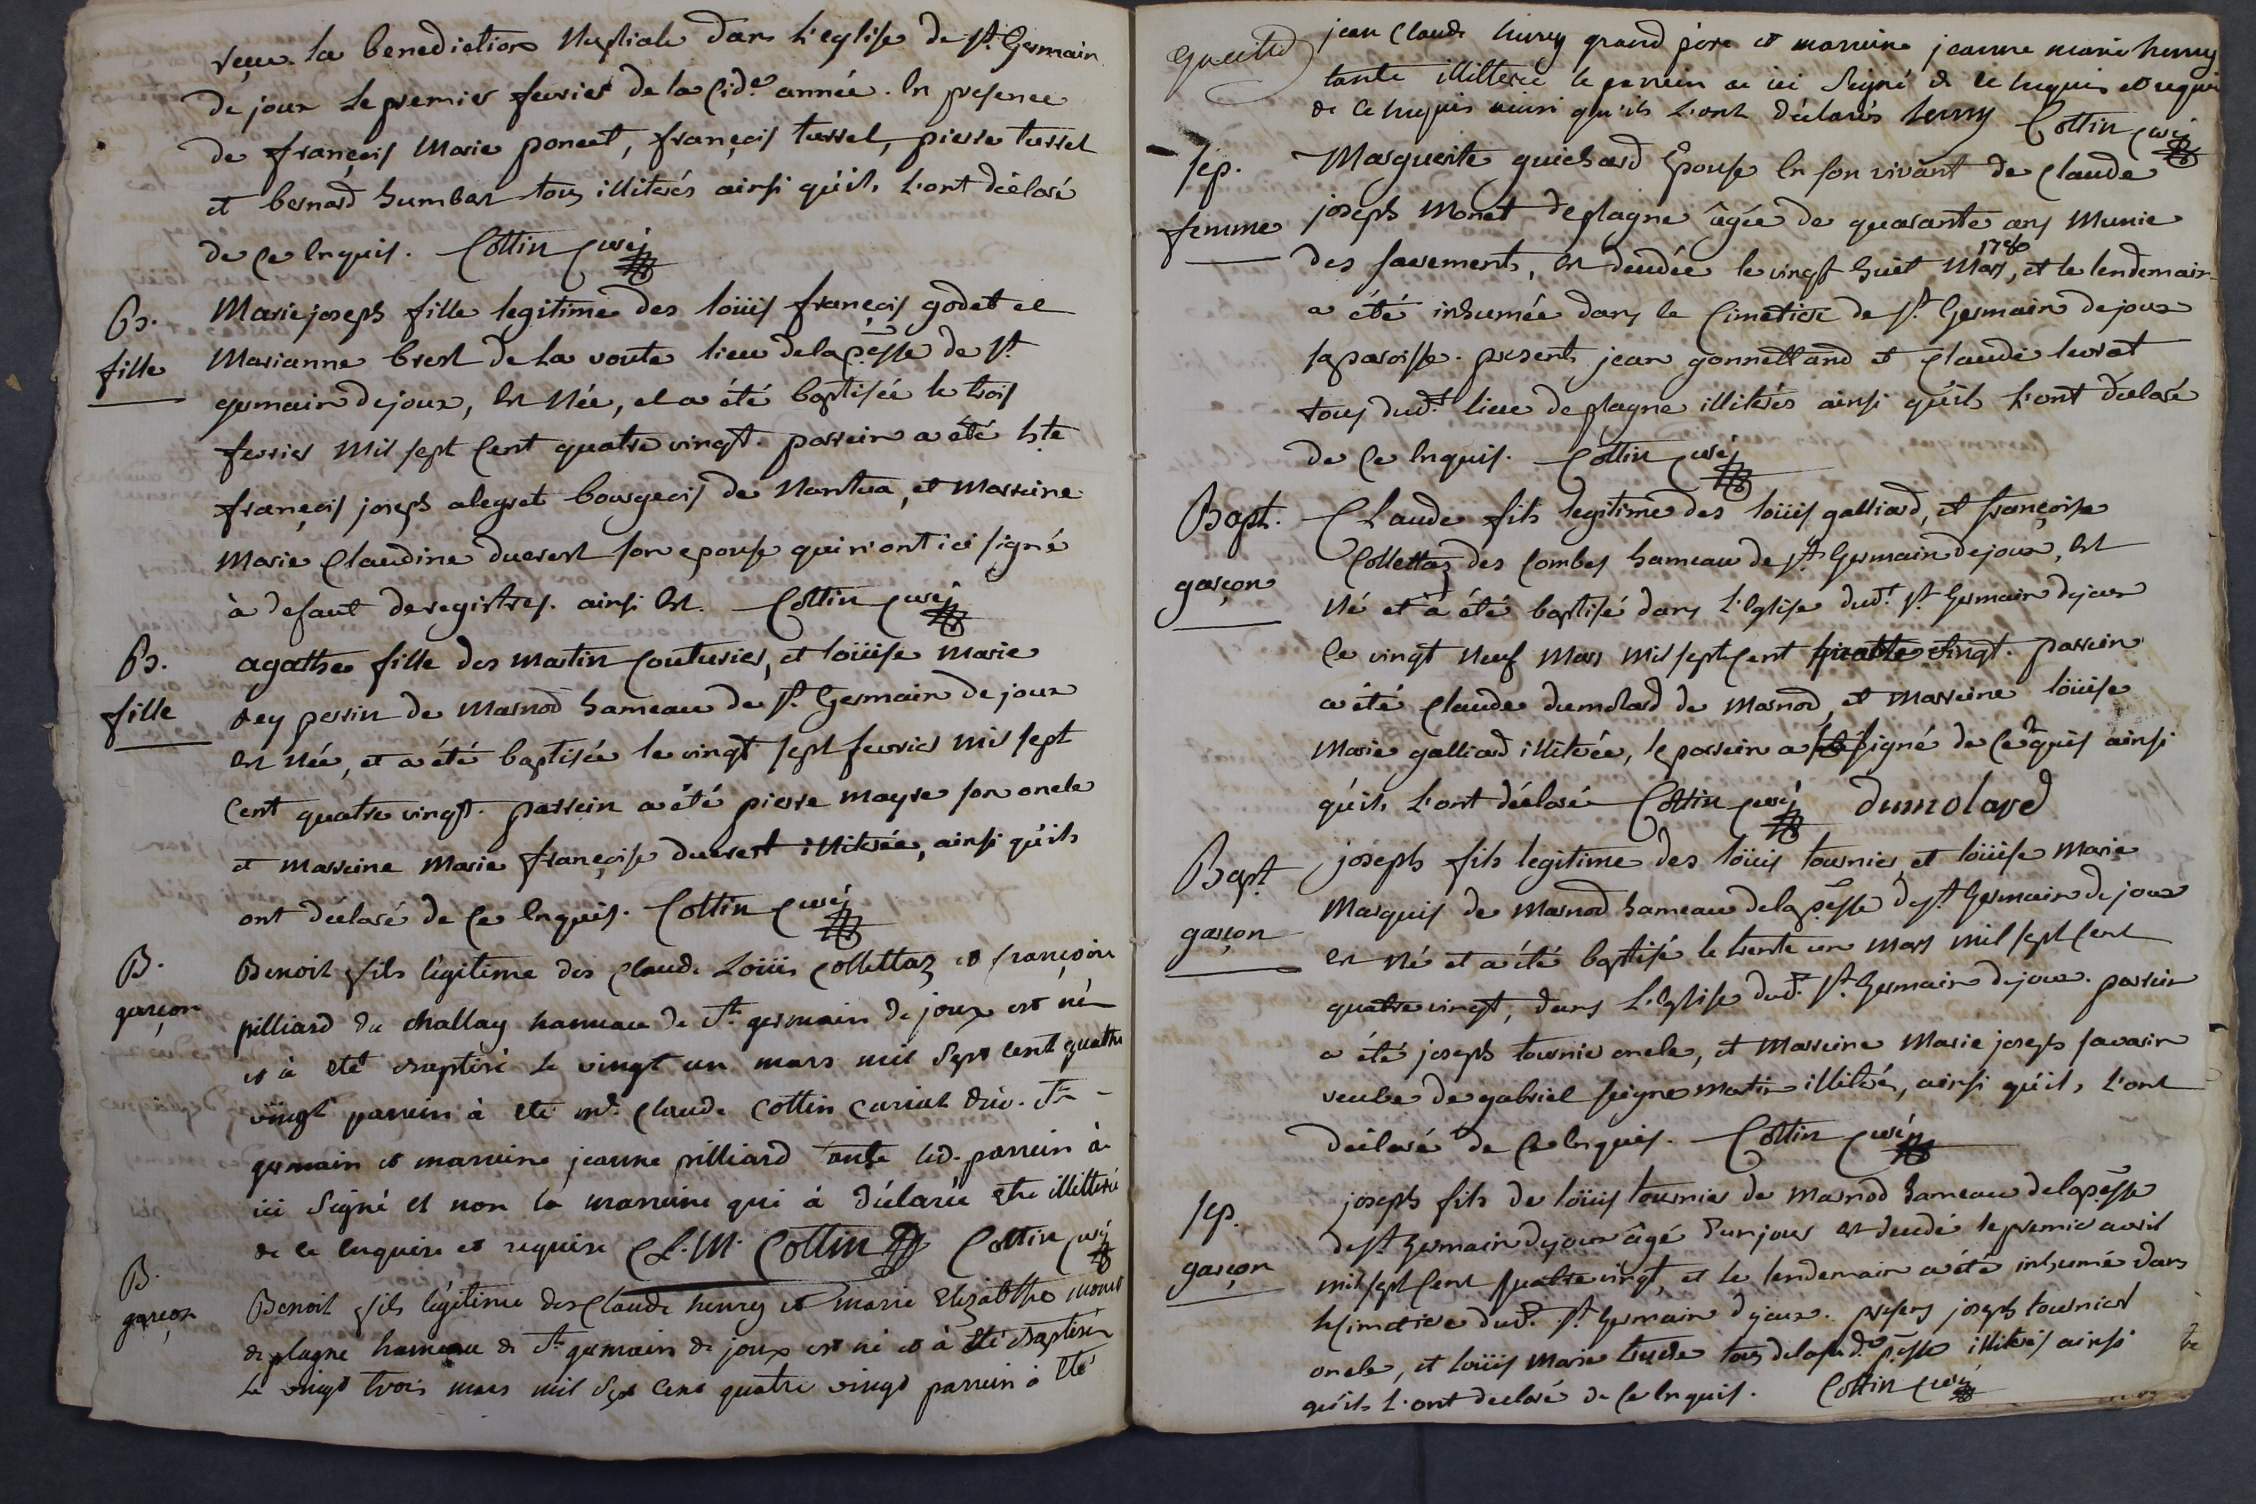 reçue la benediction Nuptiale dans L'eglise de st. Germain
de joux Le premier fevrier de la Cid.e année. En presence
de françois Marie poncet, françois tussel, pierre tussel
et bernard humbert tous illiterés ainsi qu'ils L'ont déclaré
de Ce Enquis. Cottin Curé
B.
fille
Marie joseph fille legitime des loüis françois godet et
Marianne brest de La voute lieu de la p.esse de st.
germain de joux, Est Née, et a été baptisée le trois
fevrier Mil sept Cent quatre vingt. parrein a été h.te
françois joseph alegret bourgeois de Nantua, et Marreine
Marie Claudine ducrest son epouse qui n'ont ici signé
à defaut de registres. ainsi Est. Cottin Curé
B.
fille
agathe fille des Martin Couturier, et loüise Marie
rey perrin de Marnod hameau de st. Germain de joux
Est Née, et a été baptisée le vingt sept fevrier Mil sept
Cent quatre vingt. parrein a été pierre mayre son oncle
et marreine Marie françoise ducrest illiterée, ainsi qu'ils
ont déclaré de Ce Enquis. Cottin Curé
B.
garçon
Benoit fils légitime des Claude Loüis Collettaz et françoise
pilliard du challay hameau de St. germain de joux est né
et à eté baptisé le vingt un mars mil Sept Cent quattre
vingt parrein à eté mr. Claude Cottin curial dud. St. -
germain et marreine jeanne pilliard tante led. parrein à
ici Signé et non la marreine qui à déclarée Etre illitterée
de ce enquise et requise C.L.M. Cottin Cottin Curé
B.
garçon
Benoit fils légitime des Claude henry et marie Elizabthe monet
de plagne hameau de St. germain de joux est né et à Eté baptisé
Le vingt trois mars mil Sept Cent quatre vingt parrein à Eté
jean Claude henry grand père et marreine jeanne marie henry
tante illitterée le parrein a ici Signé de ce Enquis et requis
de Ce Enquis ainsi qu'ils L'ont déclarés henry Cottin Curé
sep.
femme
Marguerite guichard Epouse En son vivant de Claude
joseph Monet de plagne âgée de quarante ans Munie
des sacrements, Est decédée le vingt huit Mars, et le lendemain
1780
a été inhumée dans le Cimetiere de st. Germain de joux
sa paroisse. presents jean gonnettand et Claude levrat
tous dud.t lieu de plagne illiterés ainsi qu'ils L'ont déclaré
de Ce Enquis. Cottin Curé
Bapt.
garçon
Claude fils legitime des loüis galliard, et françoise
Collettaz des Combes hameau de st. Germain de joux, Est
Né et a été baptisé dans L'Eglise dud.t st. Germain de joux
le vingt Neuf Mars Mil sept Cent quatre vingt. parrein
a été Claude dumolard de Marnod, et Marreine loüise
Marie galliard illiterée, le parrein a signé de Ce Enquis ainsi
qu'ils L'ont déclaré Cottin Curé dumolard
Bapt
garçon
joseph fils legitime des loüis tournier, et loüise Marie
Marquis de Marnod hameau de la p.esse de st. Germain de joux
Est Né et a été baptisé le trente un Mars Mil sept Cent
quatre vingt, dans L'Eglise dud.t st. Germain de joux. parrein
a été joseph tournier oncle, et Marreine Marie joseph savarin
veuve de gabriel seigne Martin illiterés, ainsi qu'ils L'ont
déclaré de Ce Enquis. Cottin Curé
sep.
garçon
joseph fils de loüis tournier de Marnod hameau de la p.esse
de st. Germain de joux âgé d'un jour est decedé le premier avril
Mil sept Cent quatre vingt, et le lendemain a été inhumé dans
le Cimetiere dud.t st. Germain de joux. presens joseph tournier
oncle, et loüis Marie tous de la sud.e p.esse illiterés ainsi
qu'ils L'ont declaré de Ce Enquis. Cottin Curé